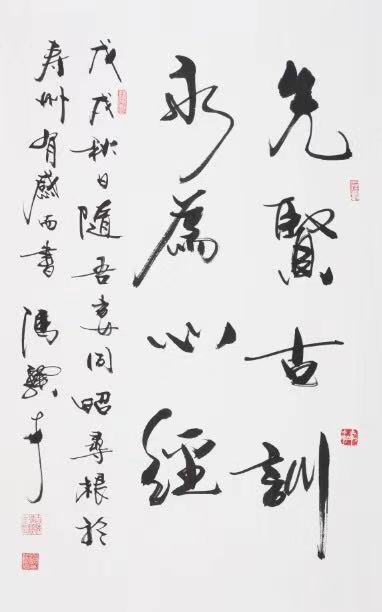 先賢古訓
永為心經
戊戌秋日隨吾妻同昭尋根於
寿州有感而書